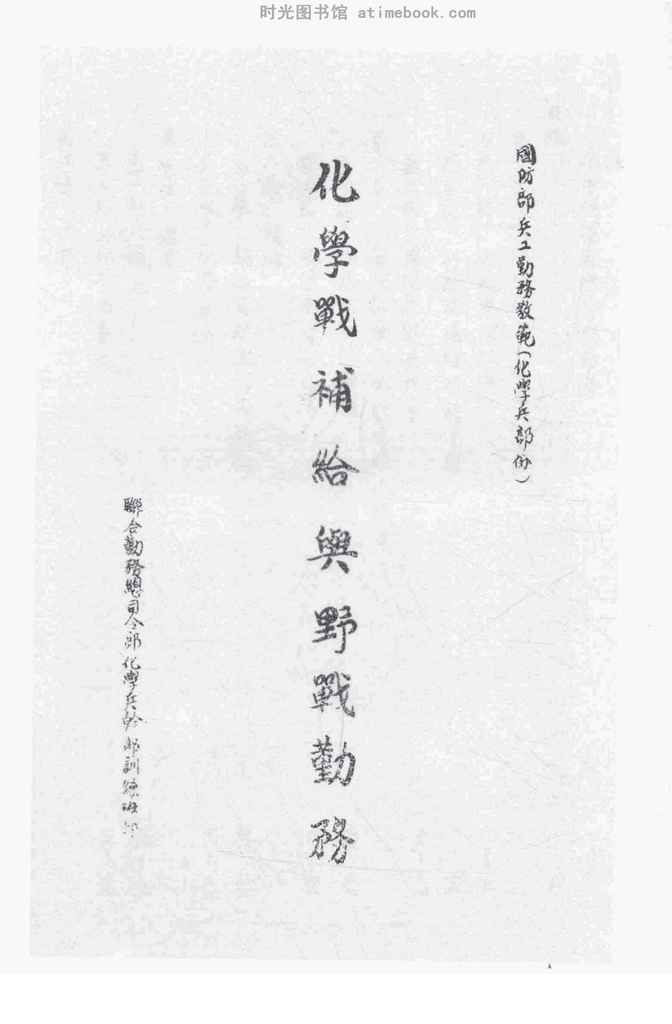 时光图书馆 atimebook.com
國防部兵工勤務教範(化學兵部份)
化學戰補給與野戰勤務
聯合勤務總司令部化學兵幹部訓練班印